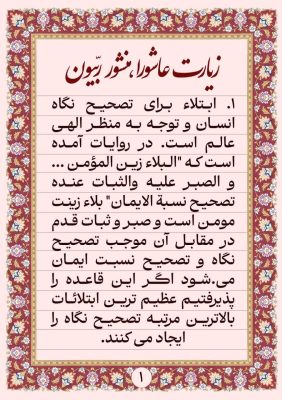 زیارت عاشورا، منشور ربّیون
۱. ابتلاء برای تصحیح نگاه
انسان و توجه به منظر الهی
عالم است. در روایات آمده
است که "البلاء زین المؤمن ...
و الصبر علیه والثبات عنده
تصحیح نسبة الایمان" بلاء زینت
مومن است و صبر و ثبات قدم
در مقابل آن موجب تصحیح
نگاه و تصحیح نسبت ایمان
می‌شود اگر این قاعده را
پذیرفتیم عظیم ترین ابتلائات
بالاترین مرتبه تصحیح نگاه را
ایجاد می کنند.
۱